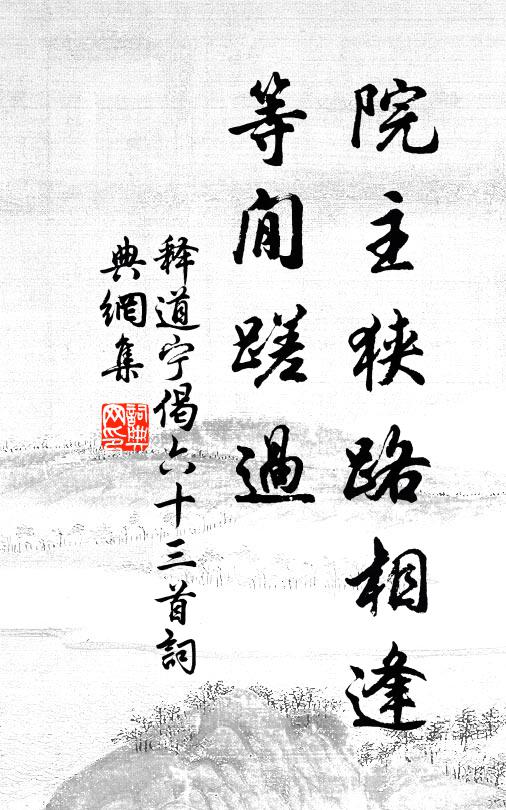 院主狭路相逢
等闲蹉過
释道宁偈六十三首詞
典網集
詞典網印